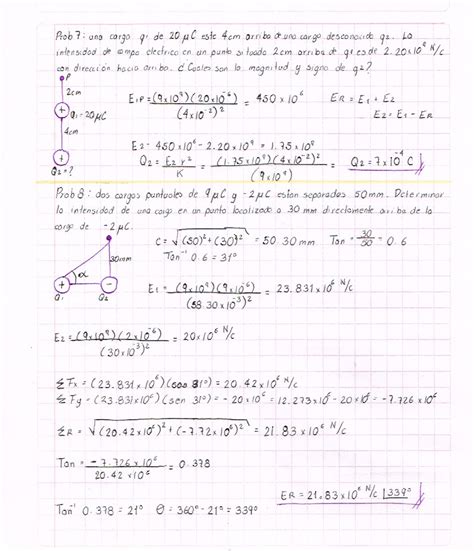 Prob 7: una carga q1 de 20 μC este 4cm arriba de una carga desconocida q2. La
intensidad de campo electrico en un punto situado 2cm arriba de q1 es de 2.20x10⁸ N/c
con dirección hacia arriba. ¿Cuales son la magnitud y signo de q2?
P
2cm
Q1=20μC
4cm
Q2=?
E1P = (9x10⁹)(20x10⁻⁶) / (4x10⁻²)² = 450 x 10⁶
ER = E1 + E2
E2 = E1 - E2
E2 = 450x10⁶ - 2.20x10⁸ = 1.75x10⁸
Q2 = E2 r² / K = (1.75x10⁸)(4x10⁻²)² / (9x10⁹) = Q2 = 7x10⁻⁴ C
Prob 8: dos cargas puntuales de 9μC y -2μC estan separadas 50mm. Determinar
la intensidad de una carga en un punto localizado a 30 mm directamente arriba de la
carga de -2μC.
30mm
α
Q1 Q2
C = √(50)² + (30)² = 50.30 mm Tan = 30/50 = 0.6
Tan⁻¹ 0.6 = 31°
E1 = (9x10⁹)(9x10⁻⁶) / (58.30x10⁻³)² = 23.831x10⁶ N/c
E2 = (9x10⁹)(2x10⁻⁶) / (30x10⁻³)² = 20x10⁶ N/c
ΣFx = (23.831x10⁶)(cos 31°) = 20.42x10⁶ N/c
ΣFy = (23.831x10⁶)(sen 31°) = -20x10⁶ = 12.273x10⁶ - 20x10⁶ = -7.726x10⁶
ΣR = √(20.42x10⁶)² + (-7.72x10⁶)² = 21.83x10⁶ N/c
Tan = -7.726x10⁶ / 20.42x10⁶ = 0.378
ER = 21.83x10⁶ N/c |339°
Tan⁻¹ 0.378 = 21° θ = 360° - 21° = 339°